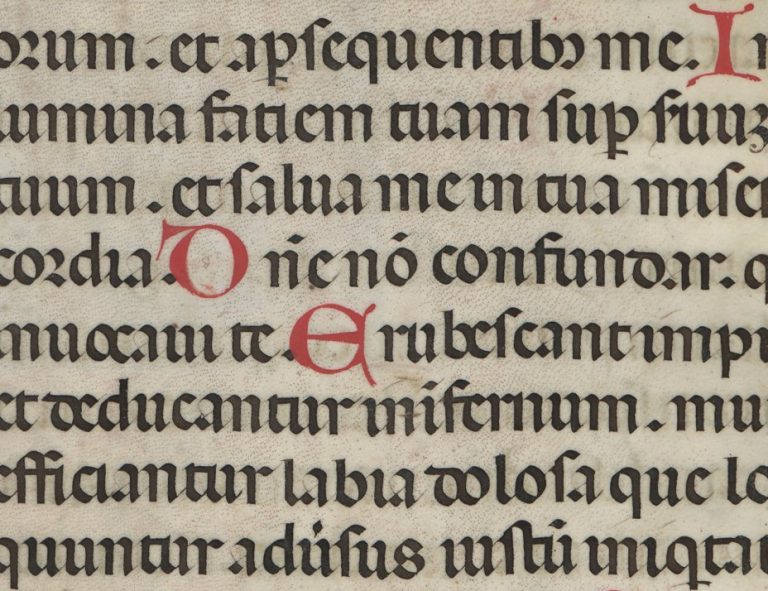 orum. et a ꝑsequentibꝰ me. In
lumina fatiem tuam suꝑ s̓uuꝫ
tuum. et salua me in tua miser
cordia. Dn̄e nō confundar. q
inuocaui te. Erubescant impi
et deducantur in infernum. mu
efficiantur labia dolosa que lo
quuntur adu̓sus iustū iniq̢tat